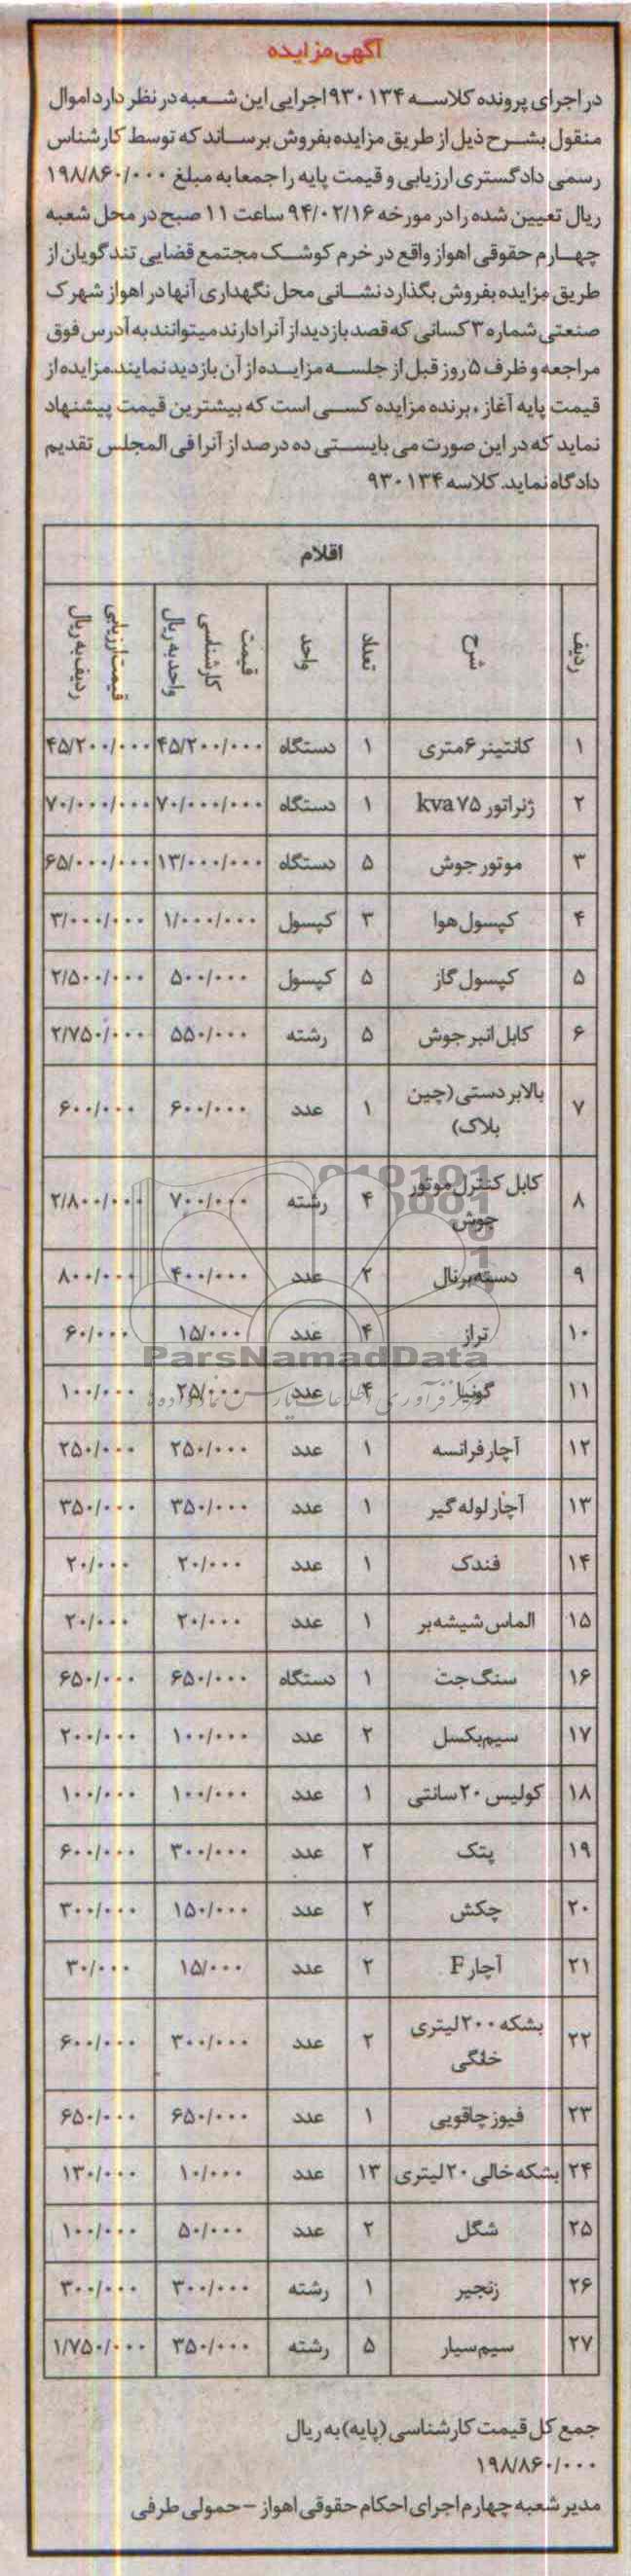 آگهی مزایده
در اجرای پرونده کلاسه ۹۳۰۱۳۴ اجرایی این شعبه در نظر دارد اموال
منقول بشرح ذیل از طریق مزایده بفروش برساند که توسط کارشناس
رسمی دادگستری ارزیابی و قیمت پایه را جمعا به مبلغ ۱۹۸/۸۶۰/۰۰۰
ریال تعیین شده را در مورخه ۹۴/۰۲/۱۶ ساعت ۱۱ صبح در محل شعبه
چهارم حقوقی اهواز واقع در خرم کوشک مجتمع قضایی تندگویان از
طریق مزایده بفروش بگذارد نشانی محل نگهداری آنها در اهواز شهرک
صنعتی شماره ۳ کسانی که قصد بازدید از آنرا دارند میتوانند به آدرس فوق
مراجعه و ظرف ۵ روز قبل از جلسه مزایده از آن بازدید نمایند. مزایده از
قیمت پایه آغاز، برنده مزایده کسی است که بیشترین قیمت پیشنهاد
نماید که در این صورت می بایستی ده درصد از آنرا فی المجلس تقدیم
دادگاه نماید. کلاسه ۹۳۰۱۳۴
اقلام
ردیف شرح تعداد واحد قیمت کارشناسی واحد به ریال قیمت ارزیابی ردیف به ریال
۱ کانتینر ۶ متری ۱ دستگاه ۴۵/۲۰۰/۰۰۰ ۴۵/۲۰۰/۰۰۰
۲ ژنراتور kva ۷۵ ۱ دستگاه ۷۰/۰۰۰/۰۰۰ ۷۰/۰۰۰/۰۰۰
۳ موتور جوش ۵ دستگاه ۱۳/۰۰۰/۰۰۰ ۶۵/۰۰۰/۰۰۰
۴ کپسول هوا ۳ کپسول ۱/۰۰۰/۰۰۰ ۳/۰۰۰/۰۰۰
۵ کپسول گاز ۵ کپسول ۵۰۰/۰۰۰ ۲/۵۰۰/۰۰۰
۶ کابل انبر جوش ۵ رشته ۵۵۰/۰۰۰ ۲/۷۵۰/۰۰۰
۷ بالابر دستی (چین بلاک) ۱ عدد ۶۰۰/۰۰۰ ۶۰۰/۰۰۰
۸ کابل کنترل موتور جوش ۴ رشته ۷۰۰/۰۰۰ ۲/۸۰۰/۰۰۰
۹ دسته برنال ۲ عدد ۴۰۰/۰۰۰ ۸۰۰/۰۰۰
۱۰ تراز ۴ عدد ۱۵/۰۰۰ ۶۰/۰۰۰
ParsNamadData
۱۱ گونیا ۴ عدد ۲۵/۰۰۰ ۱۰۰/۰۰۰
۱۲ آچار فرانسه ۱ عدد ۲۵۰/۰۰۰ ۲۵۰/۰۰۰
۱۳ آچار لوله گیر ۱ عدد ۳۵۰/۰۰۰ ۳۵۰/۰۰۰
۱۴ فندک ۱ عدد ۲۰/۰۰۰ ۲۰/۰۰۰
۱۵ الماس شیشه بر ۱ عدد ۲۰/۰۰۰ ۲۰/۰۰۰
۱۶ سنگ جت ۱ دستگاه ۶۵۰/۰۰۰ ۶۵۰/۰۰۰
۱۷ سیم بکسل ۲ عدد ۱۰۰/۰۰۰ ۲۰۰/۰۰۰
۱۸ کولیس ۲۰ سانتی ۱ عدد ۱۰۰/۰۰۰ ۱۰۰/۰۰۰
۱۹ پتک ۲ عدد ۳۰۰/۰۰۰ ۶۰۰/۰۰۰
۲۰ چکش ۲ عدد ۱۵۰/۰۰۰ ۳۰۰/۰۰۰
۲۱ آچار F ۲ عدد ۱۵/۰۰۰ ۳۰/۰۰۰
۲۲ بشکه ۲۰۰ لیتری خلگی ۲ عدد ۳۰۰/۰۰۰ ۶۰۰/۰۰۰
۲۳ فیوز چاقویی ۱ عدد ۶۵۰/۰۰۰ ۶۵۰/۰۰۰
۲۴ بشکه خالی ۲۰ لیتری ۱۳ عدد ۱۰/۰۰۰ ۱۳۰/۰۰۰
۲۵ شگل ۲ عدد ۵۰/۰۰۰ ۱۰۰/۰۰۰
۲۶ زنجیر ۱ رشته ۳۰۰/۰۰۰ ۳۰۰/۰۰۰
۲۷ سیم سیار ۵ رشته ۳۵۰/۰۰۰ ۱/۷۵۰/۰۰۰
جمع کل قیمت کارشناسی (پایه) به ریال
۱۹۸/۸۶۰/۰۰۰
مدیر شعبه چهارم اجرای احکام حقوقی اهواز - حمولی طرفی